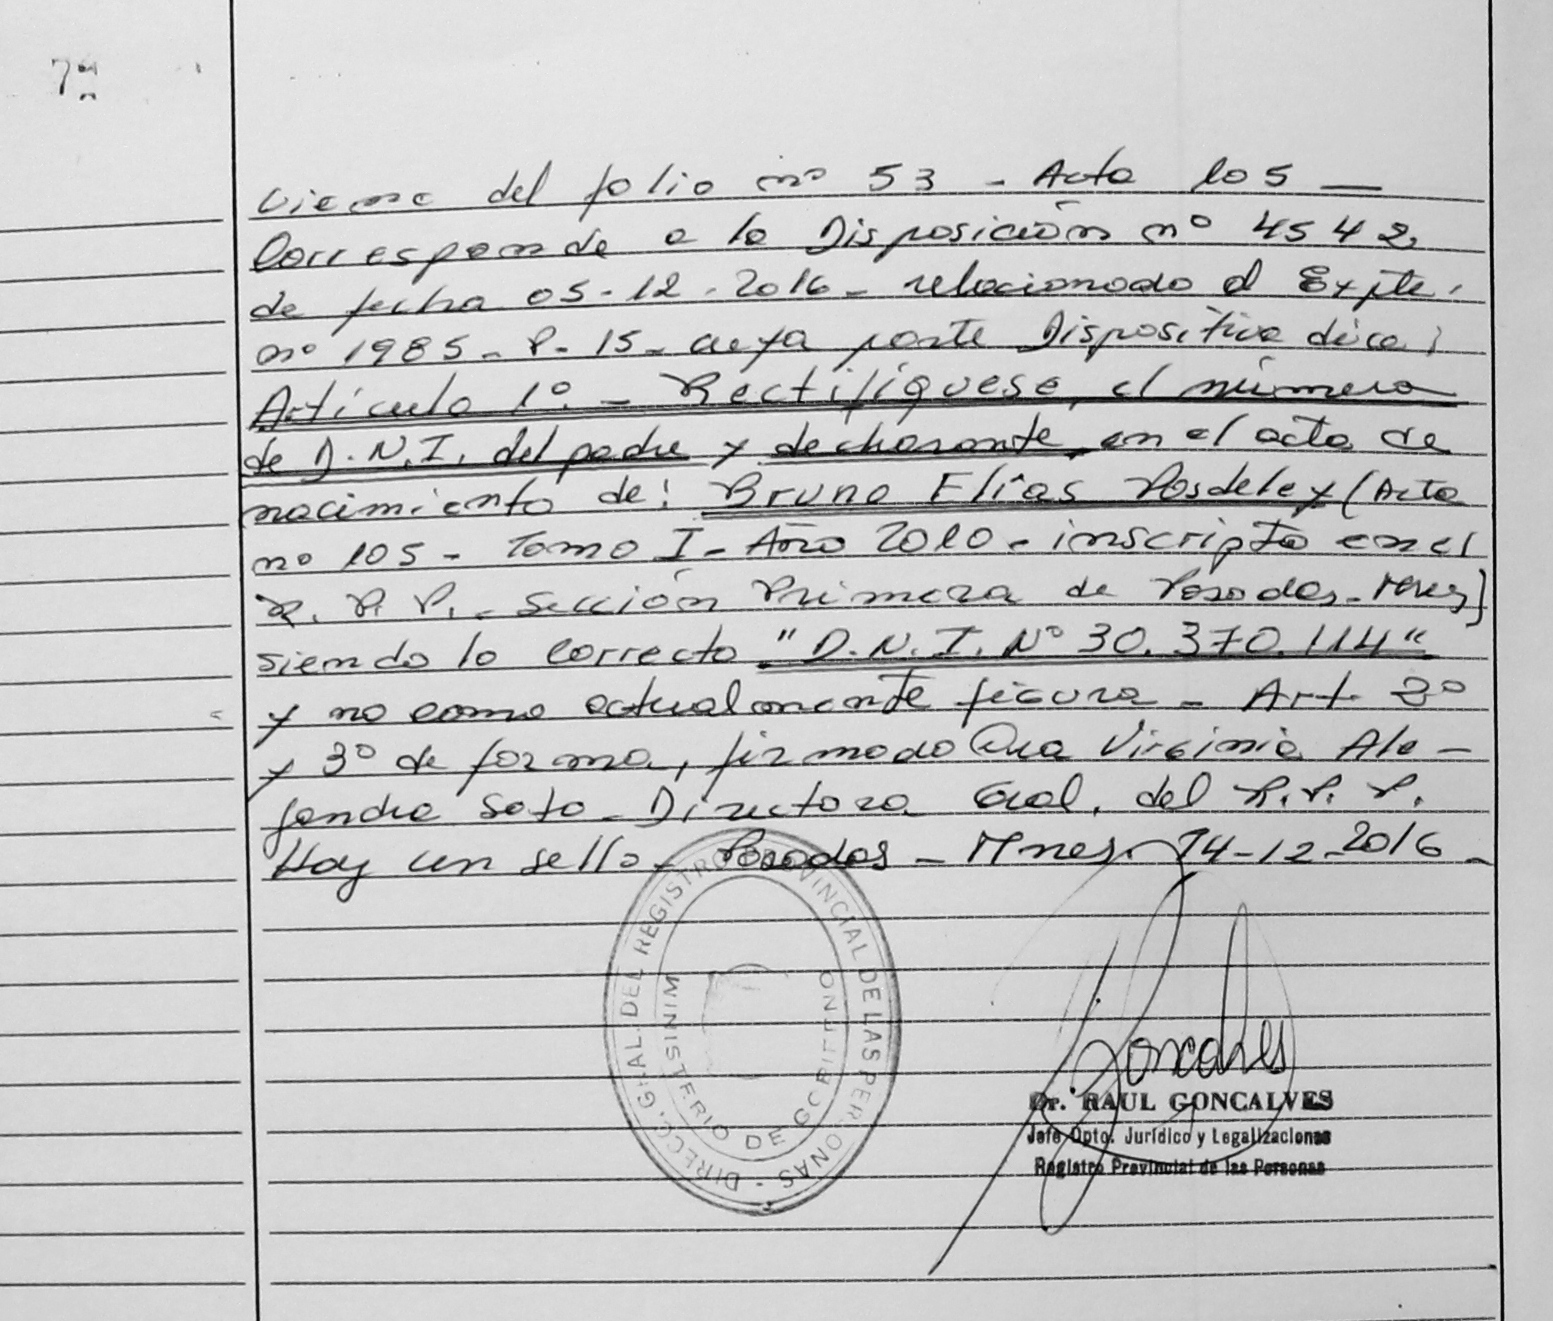 7
Viene del folio nº 53 - Acta 105 —
Corresponde a la Disposición nº 4542,
de fecha 05-12-2016 - relacionado el Expte.
nº 1985 - P - 15 - cuya parte Dispositiva dice:
Artículo 1º. - Rectifíquese, el número
de D.N.I. del padre y declarante, en el acta de
nacimiento de: Bruno Elías Posdeley (Acta
nº 105 - Tomo I - Año 2010 - inscripta en el
R. P. P. - Sección Primera de Posadas - Mnes)
siendo lo correcto "D.N.I. Nº 30.370.114"
y no como actualmente figura - Art 2º
y 3º de forma, firmado Dra Virginia Ale-
jandra Soto - Directora Gral. del R.P.P.
Hay un sello - Posadas - Mnes. 14-12-2016 -
DIRECC. GRAL. DEL REGISTRO PROVINCIAL DE LAS PERSONAS -
MINISTERIO DE GOBIERNO
Goncalves
Dr. RAUL GONCALVES
Jefe Dpto. Jurídico y Legalizaciones
Registro Provincial de las Personas